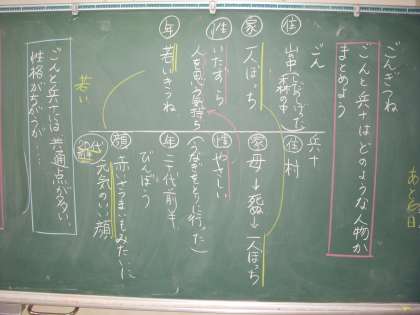 ごんぎつね
ごんと兵十はどのような人物か
まとめよう
ごん
住 山中 森の中
家 一人ぼっち
性 いたずら
人を思う気持ち
年 若いきつね
兵十
住 村
家 母→死 一人ぼっち
性 やさしい
（うなぎをとりに行った）
年 二十代前半
びんぼう
顔 赤いさつまいもみたいに
元気のいい顔
若い
ごんと兵十には共通点が多い。
性格がちがうが…